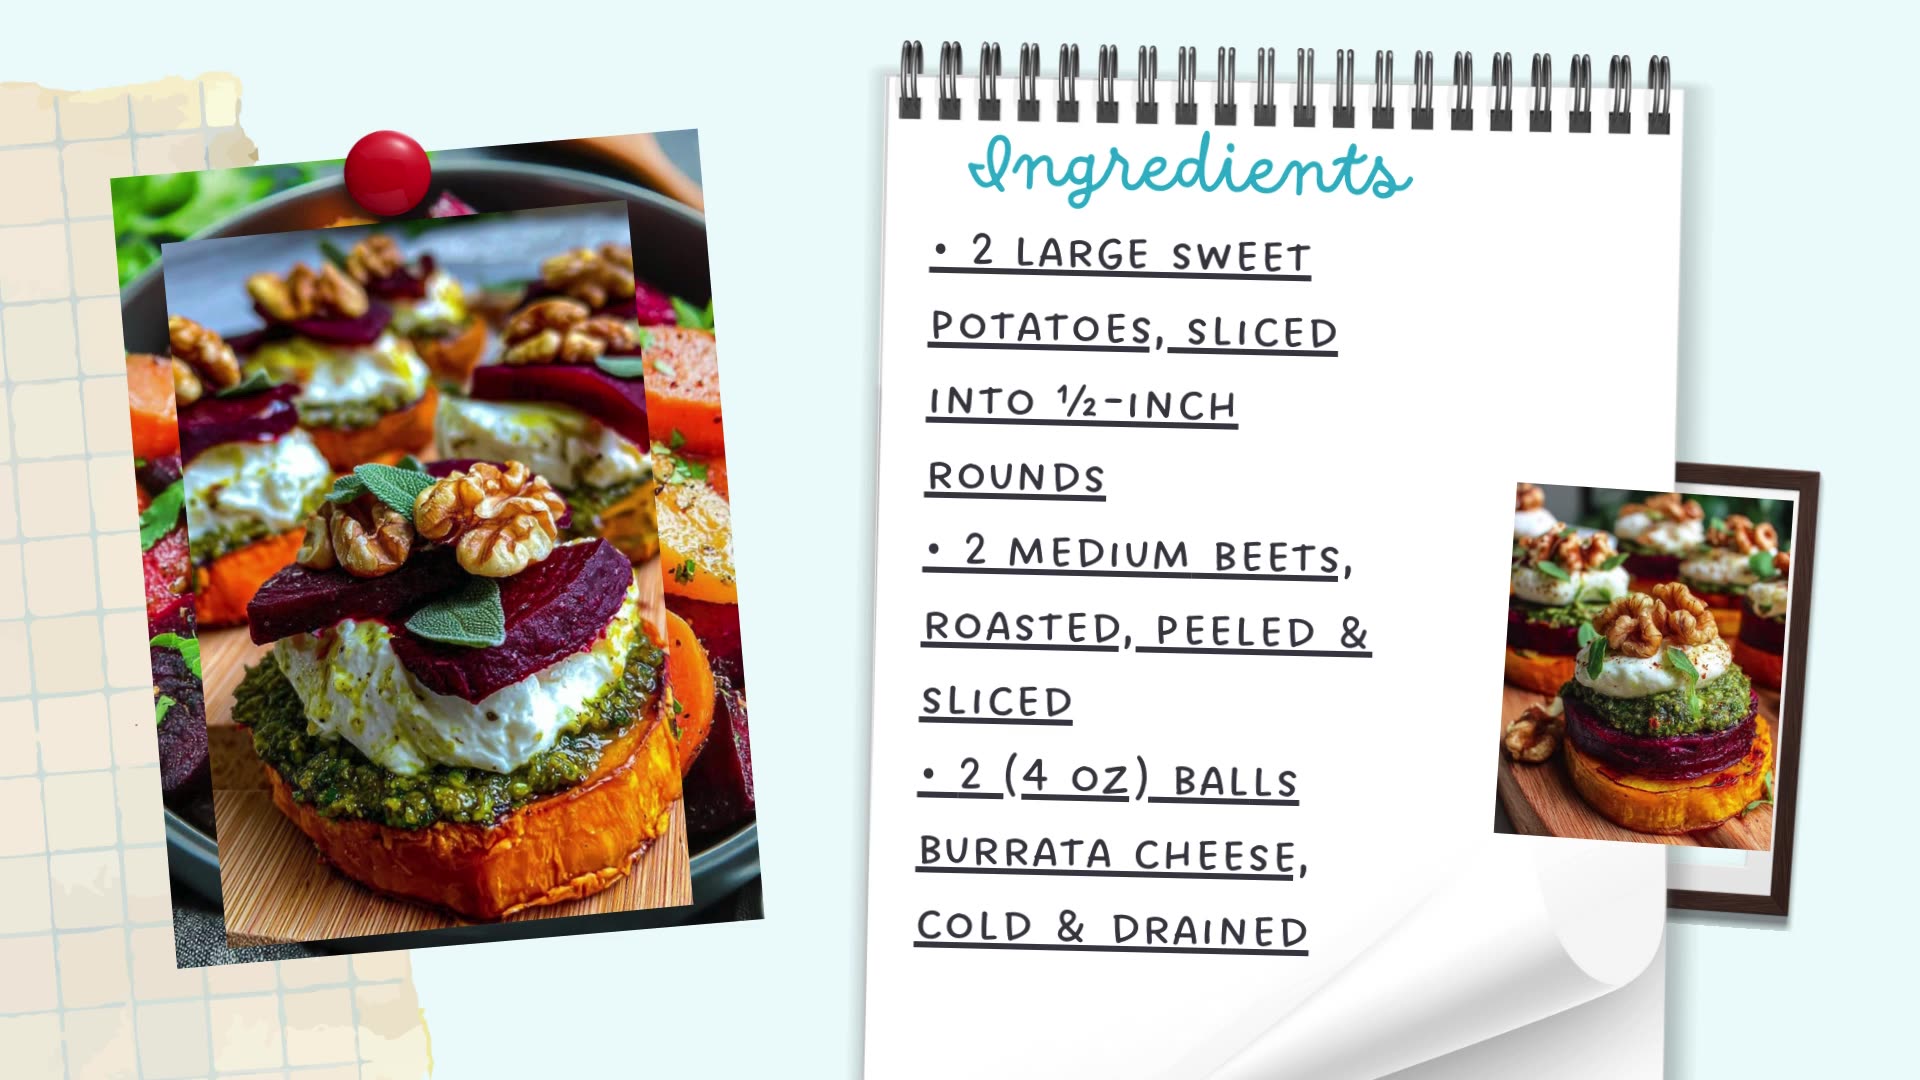 Ingredients
• 2 LARGE SWEET
POTATOES, SLICED
INTO ½-INCH
ROUNDS
• 2 MEDIUM BEETS,
ROASTED, PEELED &
SLICED
• 2 (4 OZ) BALLS
BURRATA CHEESE,
COLD & DRAINED